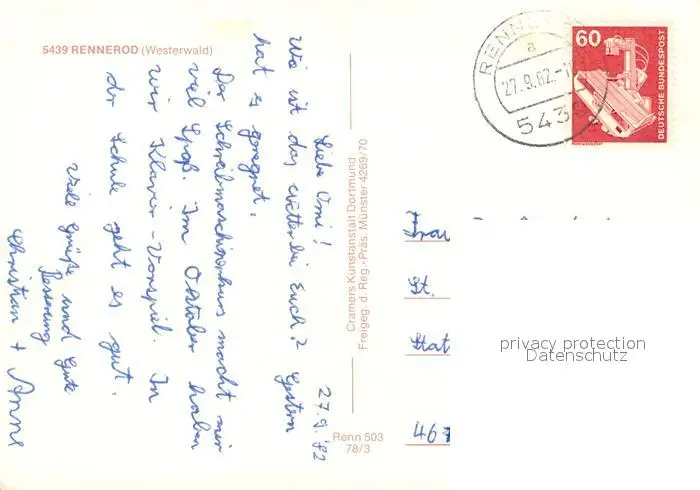 5439 RENNEROD (Westerwald)
RENNEROD
a
27.9.82.-1
543
60
DEUTSCHE BUNDESPOST
27.9.82
Liebe Omi!
Wie ist das Wetter bei Euch? Gestern
hat es geregnet.
Der Schreibmaschinenkurs macht mir
viel Spaß. Im Oktober haben
wir Klavier-Vorspiel. In
der Schule geht es gut.
Viele Grüße und Gute
Besserung
Christian + Anne
Cramers Kunstanstalt Dortmund
Freigeg. d. Reg.-Präs. Münster 4269/70
Renn 503
78/3
Frau
St.
Stat
467
privacy protection
Datenschutz